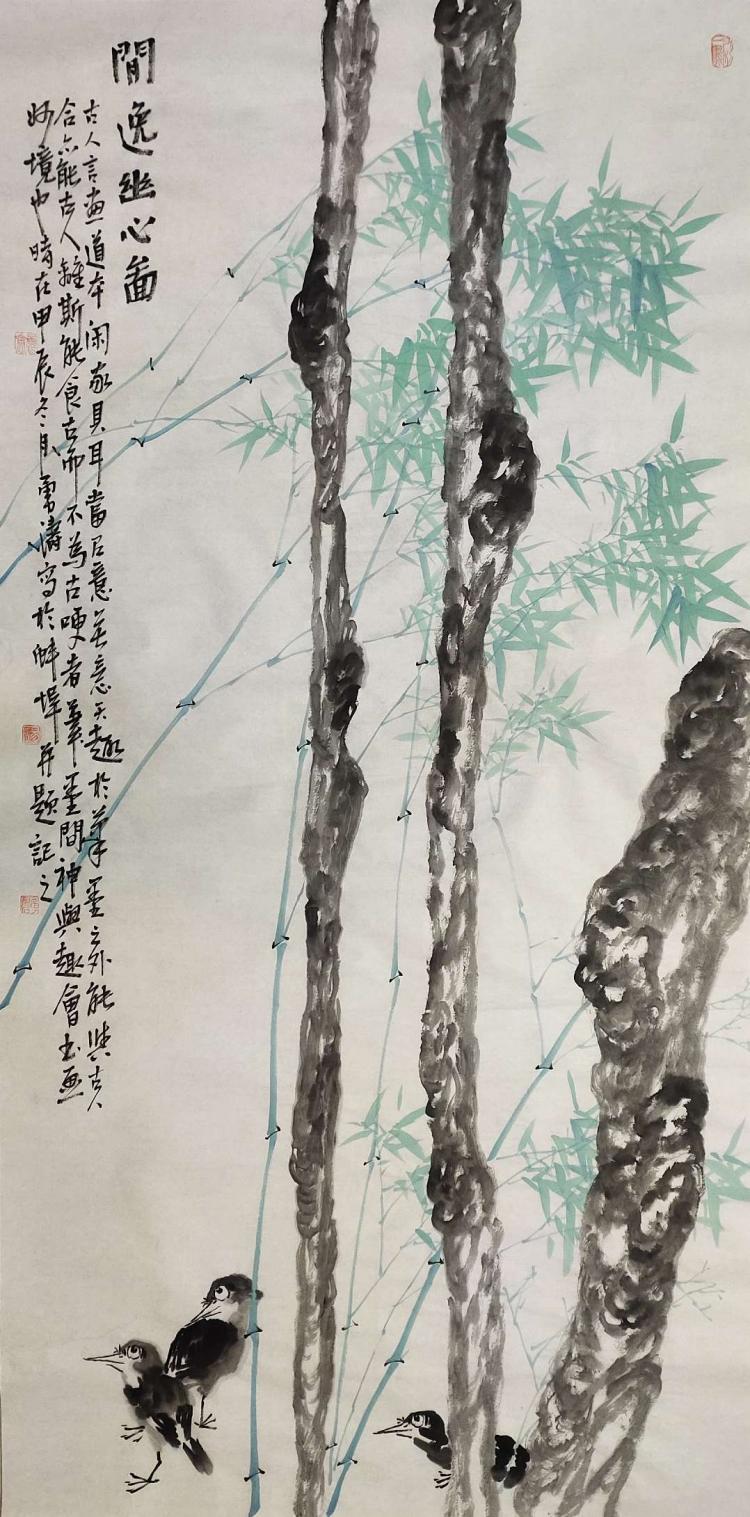 間逸幽心圖
古人言畫道本閑家具耳當以意無意天趣於筆墨之外能與古人
合亦能古人離斯能食古而不為古哽者筆墨間神與趣會書画
妙境也時在甲辰冬月勇濤寫於蚌埠并題記之